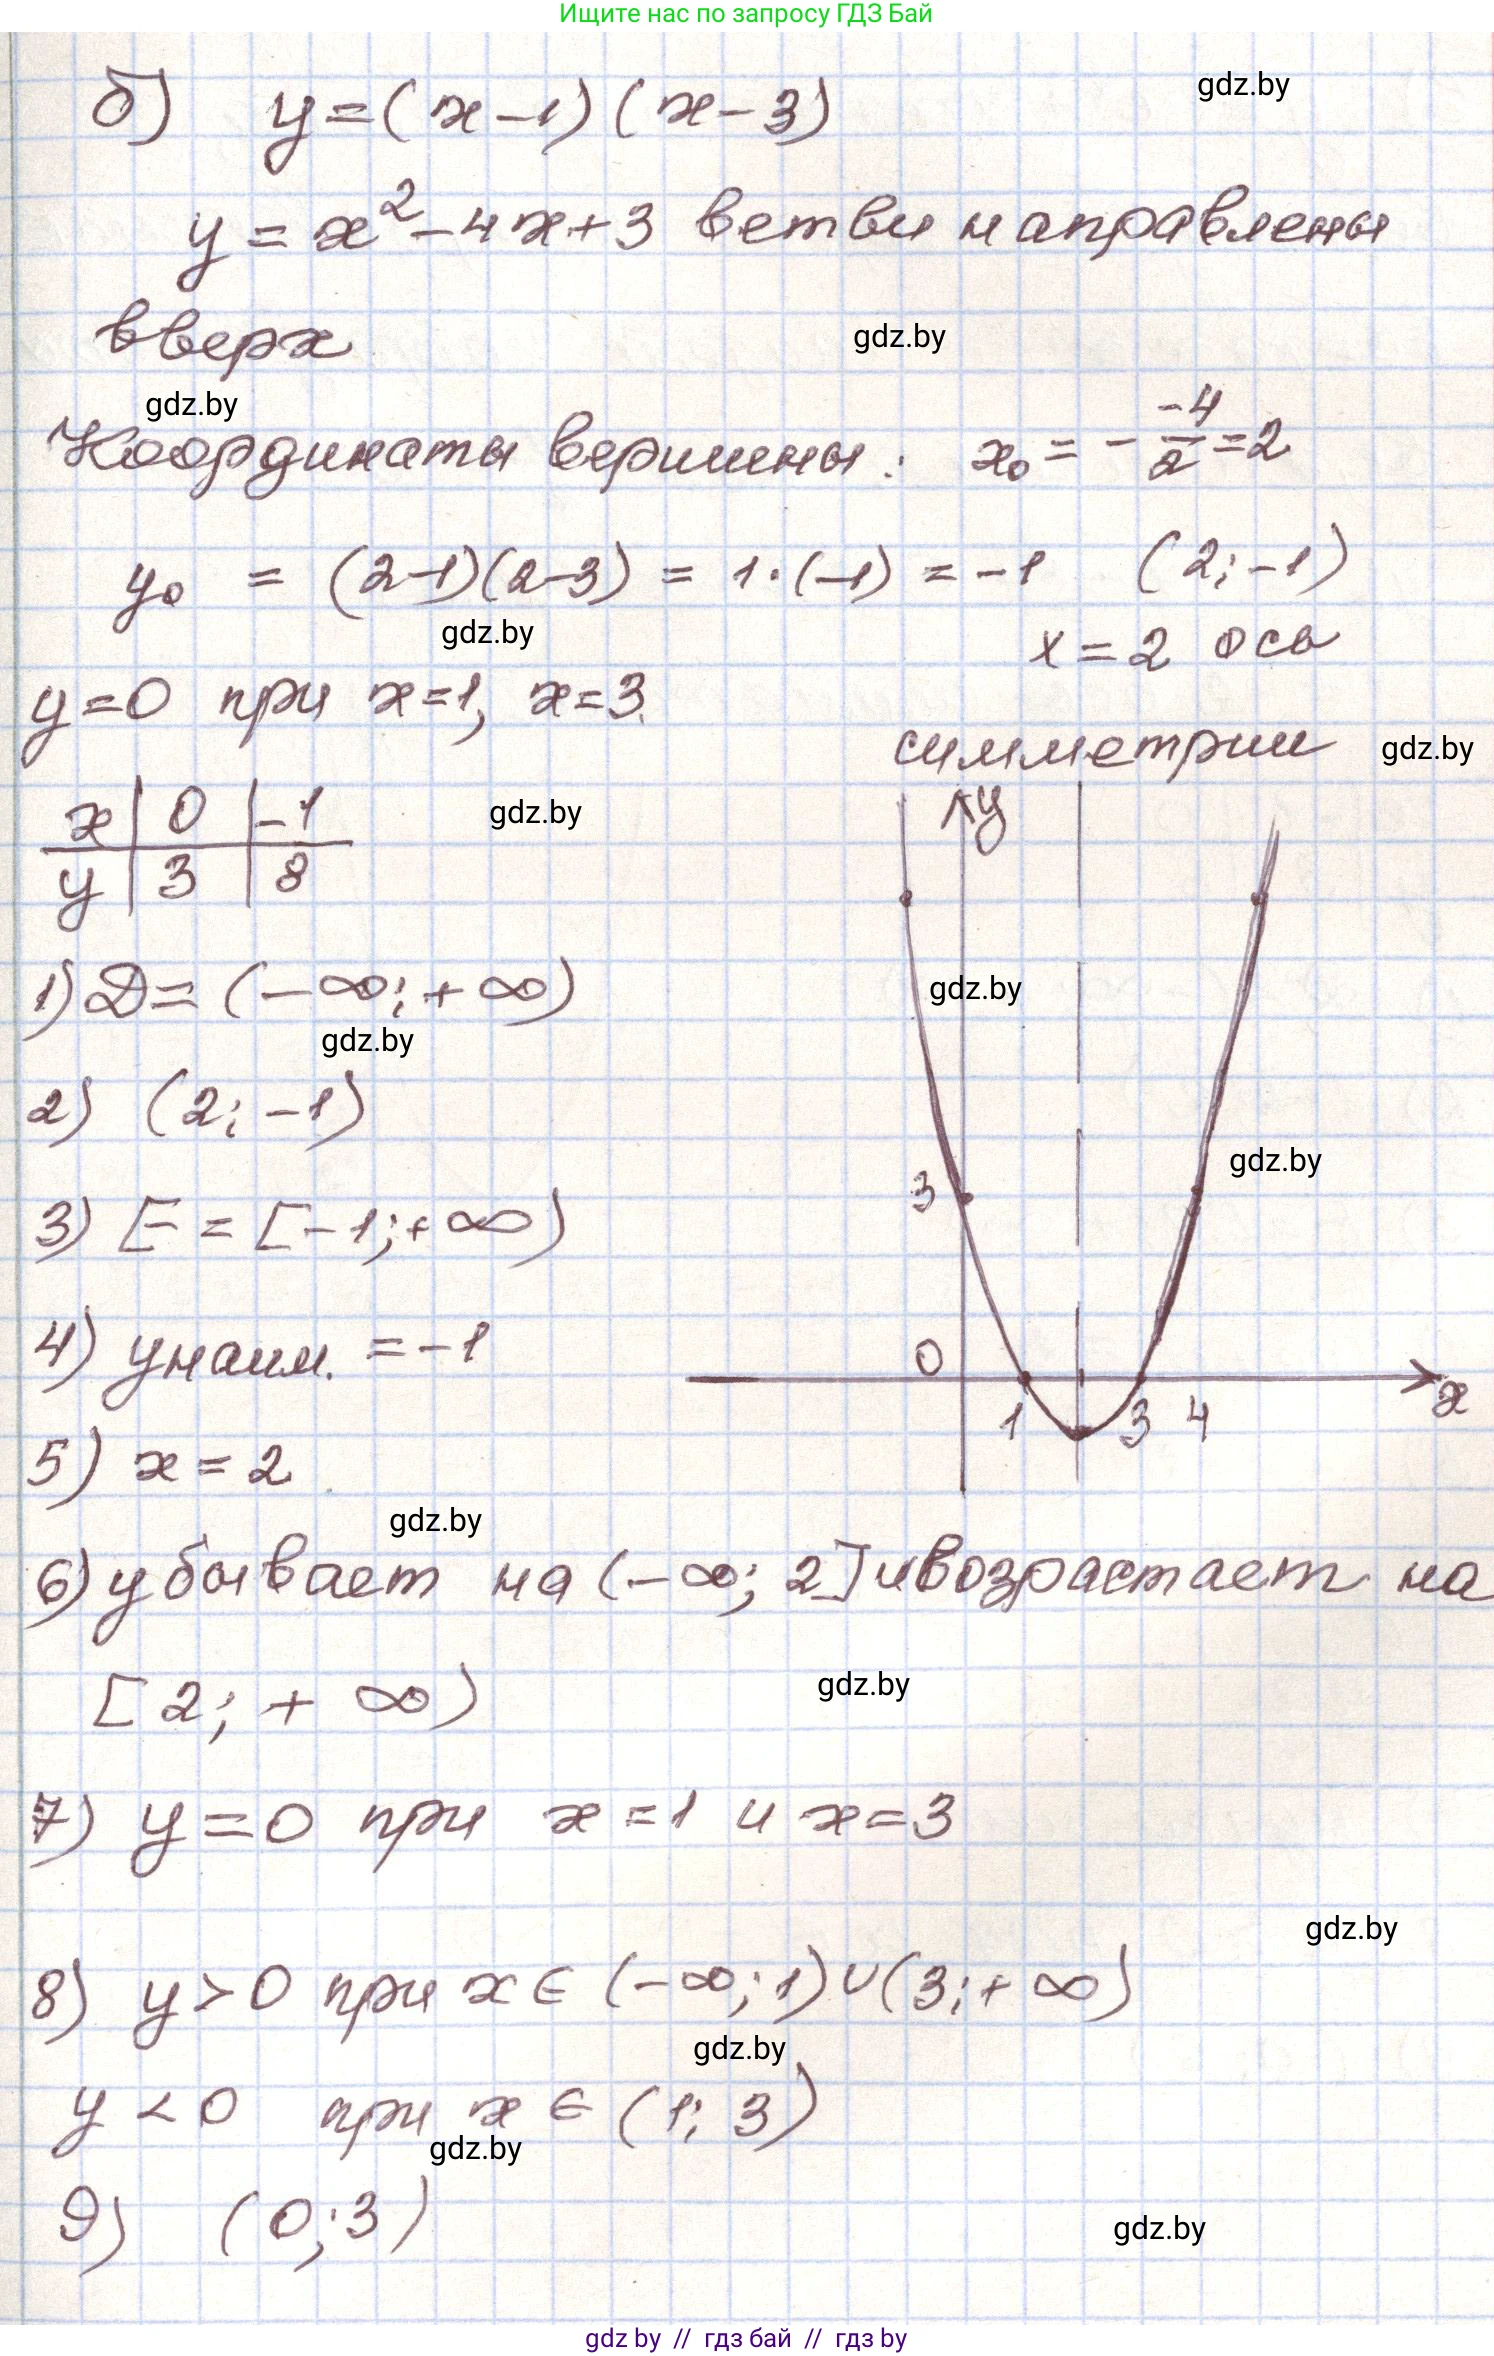 Ищите нас по запросу ГДЗ Бай
б) y=(x-1)(x-3)
gdz.by
y=x²-4x+3 ветви направлены
вверх
gdz.by
gdz.by
Координаты вершины: x₀ = - -4/2 = 2
y₀ = (2-1)(2-3) = 1·(-1) = -1 (2; -1)
gdz.by
x = 2 ось
y=0 при x=1, x=3.
симметрии
gdz.by
x | 0 | -1
gdz.by
y | 3 | 8
y
1) D= (-∞; +∞)
gdz.by
gdz.by
2) (2; -1)
gdz.by
3) E = [-1; +∞)
3
4) yнаим. = -1
0
1 3 4
x
5) x = 2
gdz.by
6) убывает на (-∞; 2] и возрастает на
[2; +∞)
gdz.by
7) y=0 при x=1 и x=3
gdz.by
8) y>0 при x∈(-∞; 1)∪(3; +∞)
gdz.by
y<0 при x∈(1; 3)
gdz.by
9) (0; 3)
gdz.by
gdz by // гдз бай // гдз by